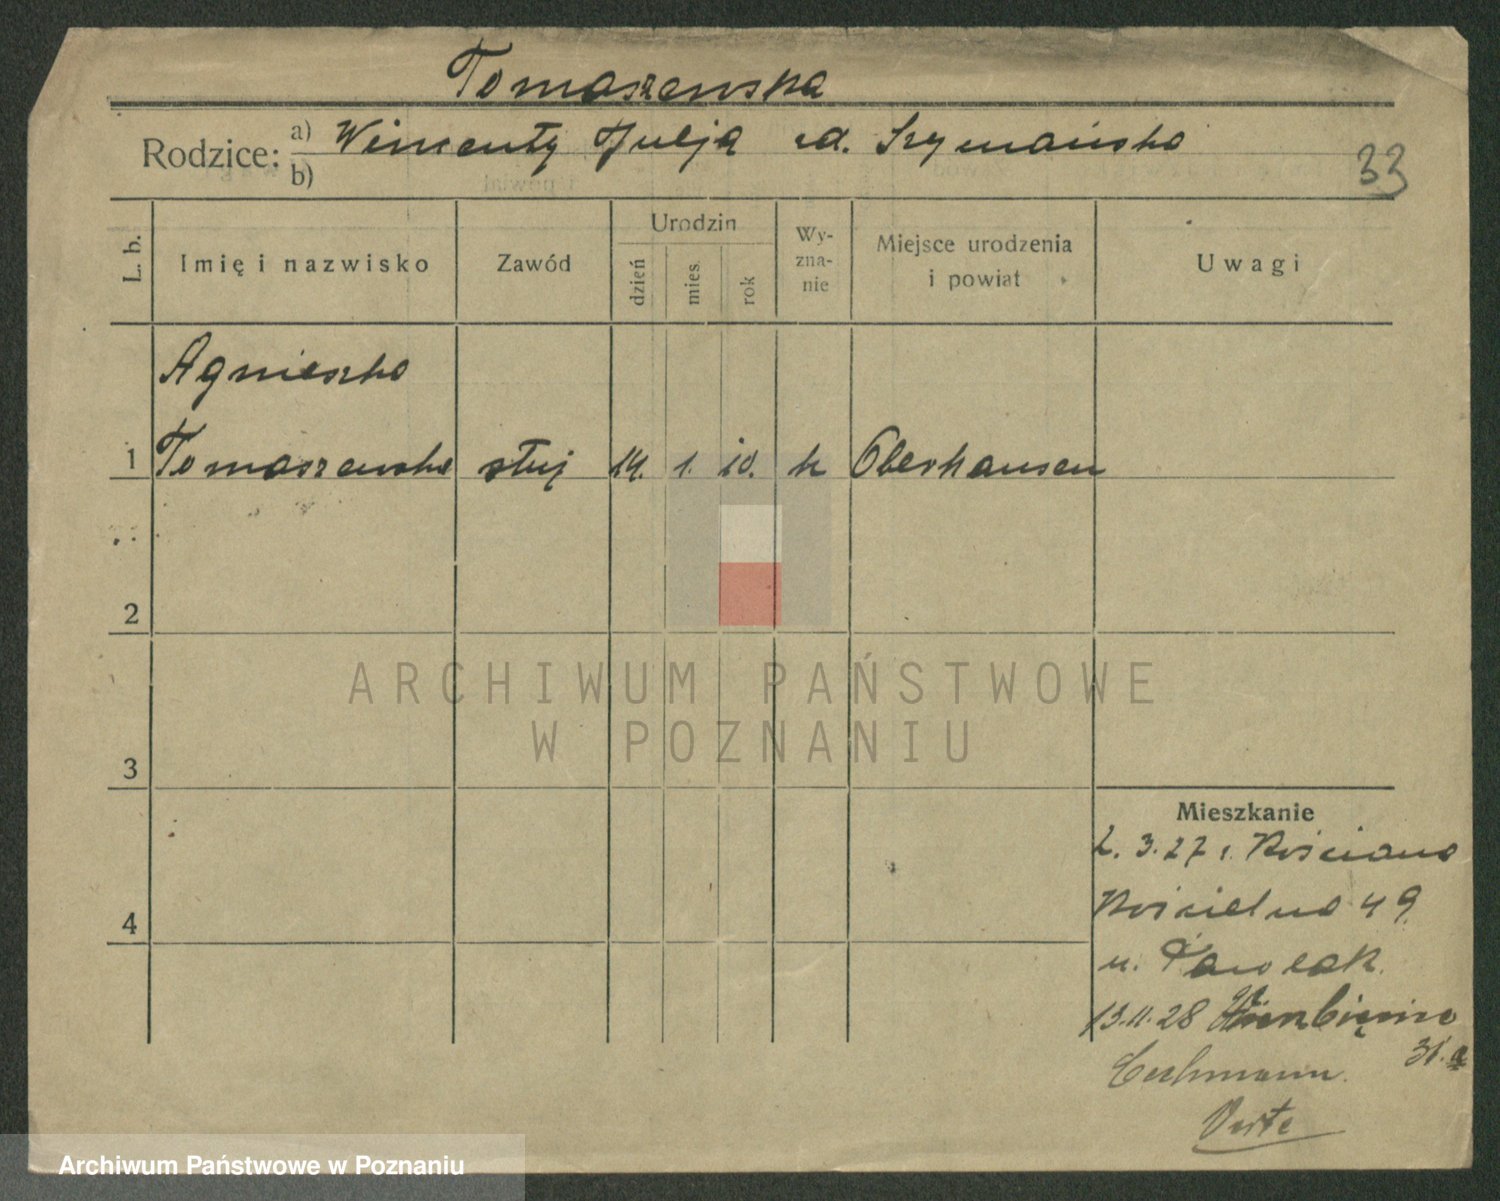 Tomaszewska
Rodzice: a) Wincenty Julja zd. Szymańska
b)
33
L. b.
Imię i nazwisko
Zawód
Urodzin
dzień
mies.
rok
Wy-
zna-
nie
Miejsce urodzenia
i powiat
Uwagi
Agnieszka
1 Tomaszewska służ 14. 1. 10. k Oberhausen
2
3
4
ARCHIWUM PAŃSTWOWE
W POZNANIU
Mieszkanie
2. 3. 27 Kościana
Kościelna 49
u. Pawlak
13.11.28 Wierzbięcice
31.a
Verte
Archiwum Państwowe w Poznaniu